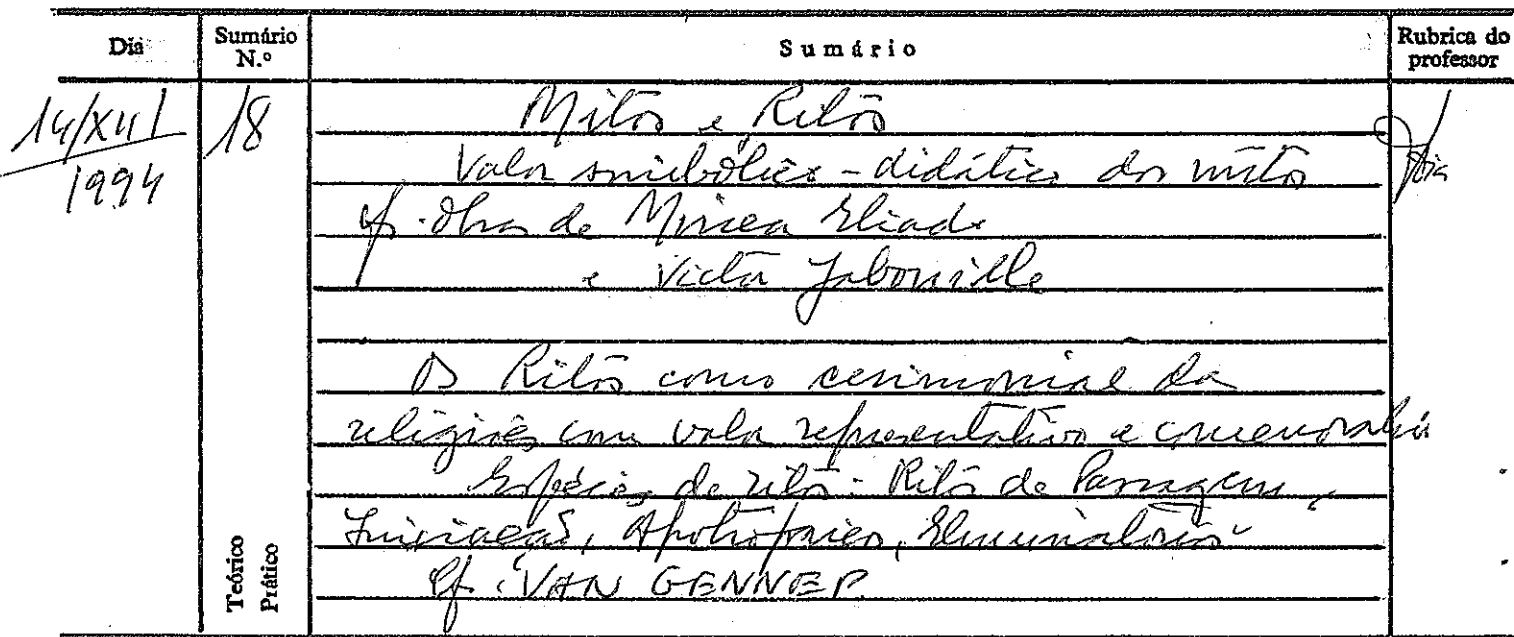 Dia Sumário N.º Sumário Rubrica do professor
14/XII/1994 18 Mitos e Ritos
Valor simbólico-didático dos mitos
cf. obras de Mircea Eliade
e Victor Jabouille
Os Ritos como cerimonial das
religiões com valor representativo e comemorativo
Espécies de ritos: Ritos de Passagem,
Iniciação, Apotropaicos,
Cf. VAN GENNEP.
Teórico
Prático